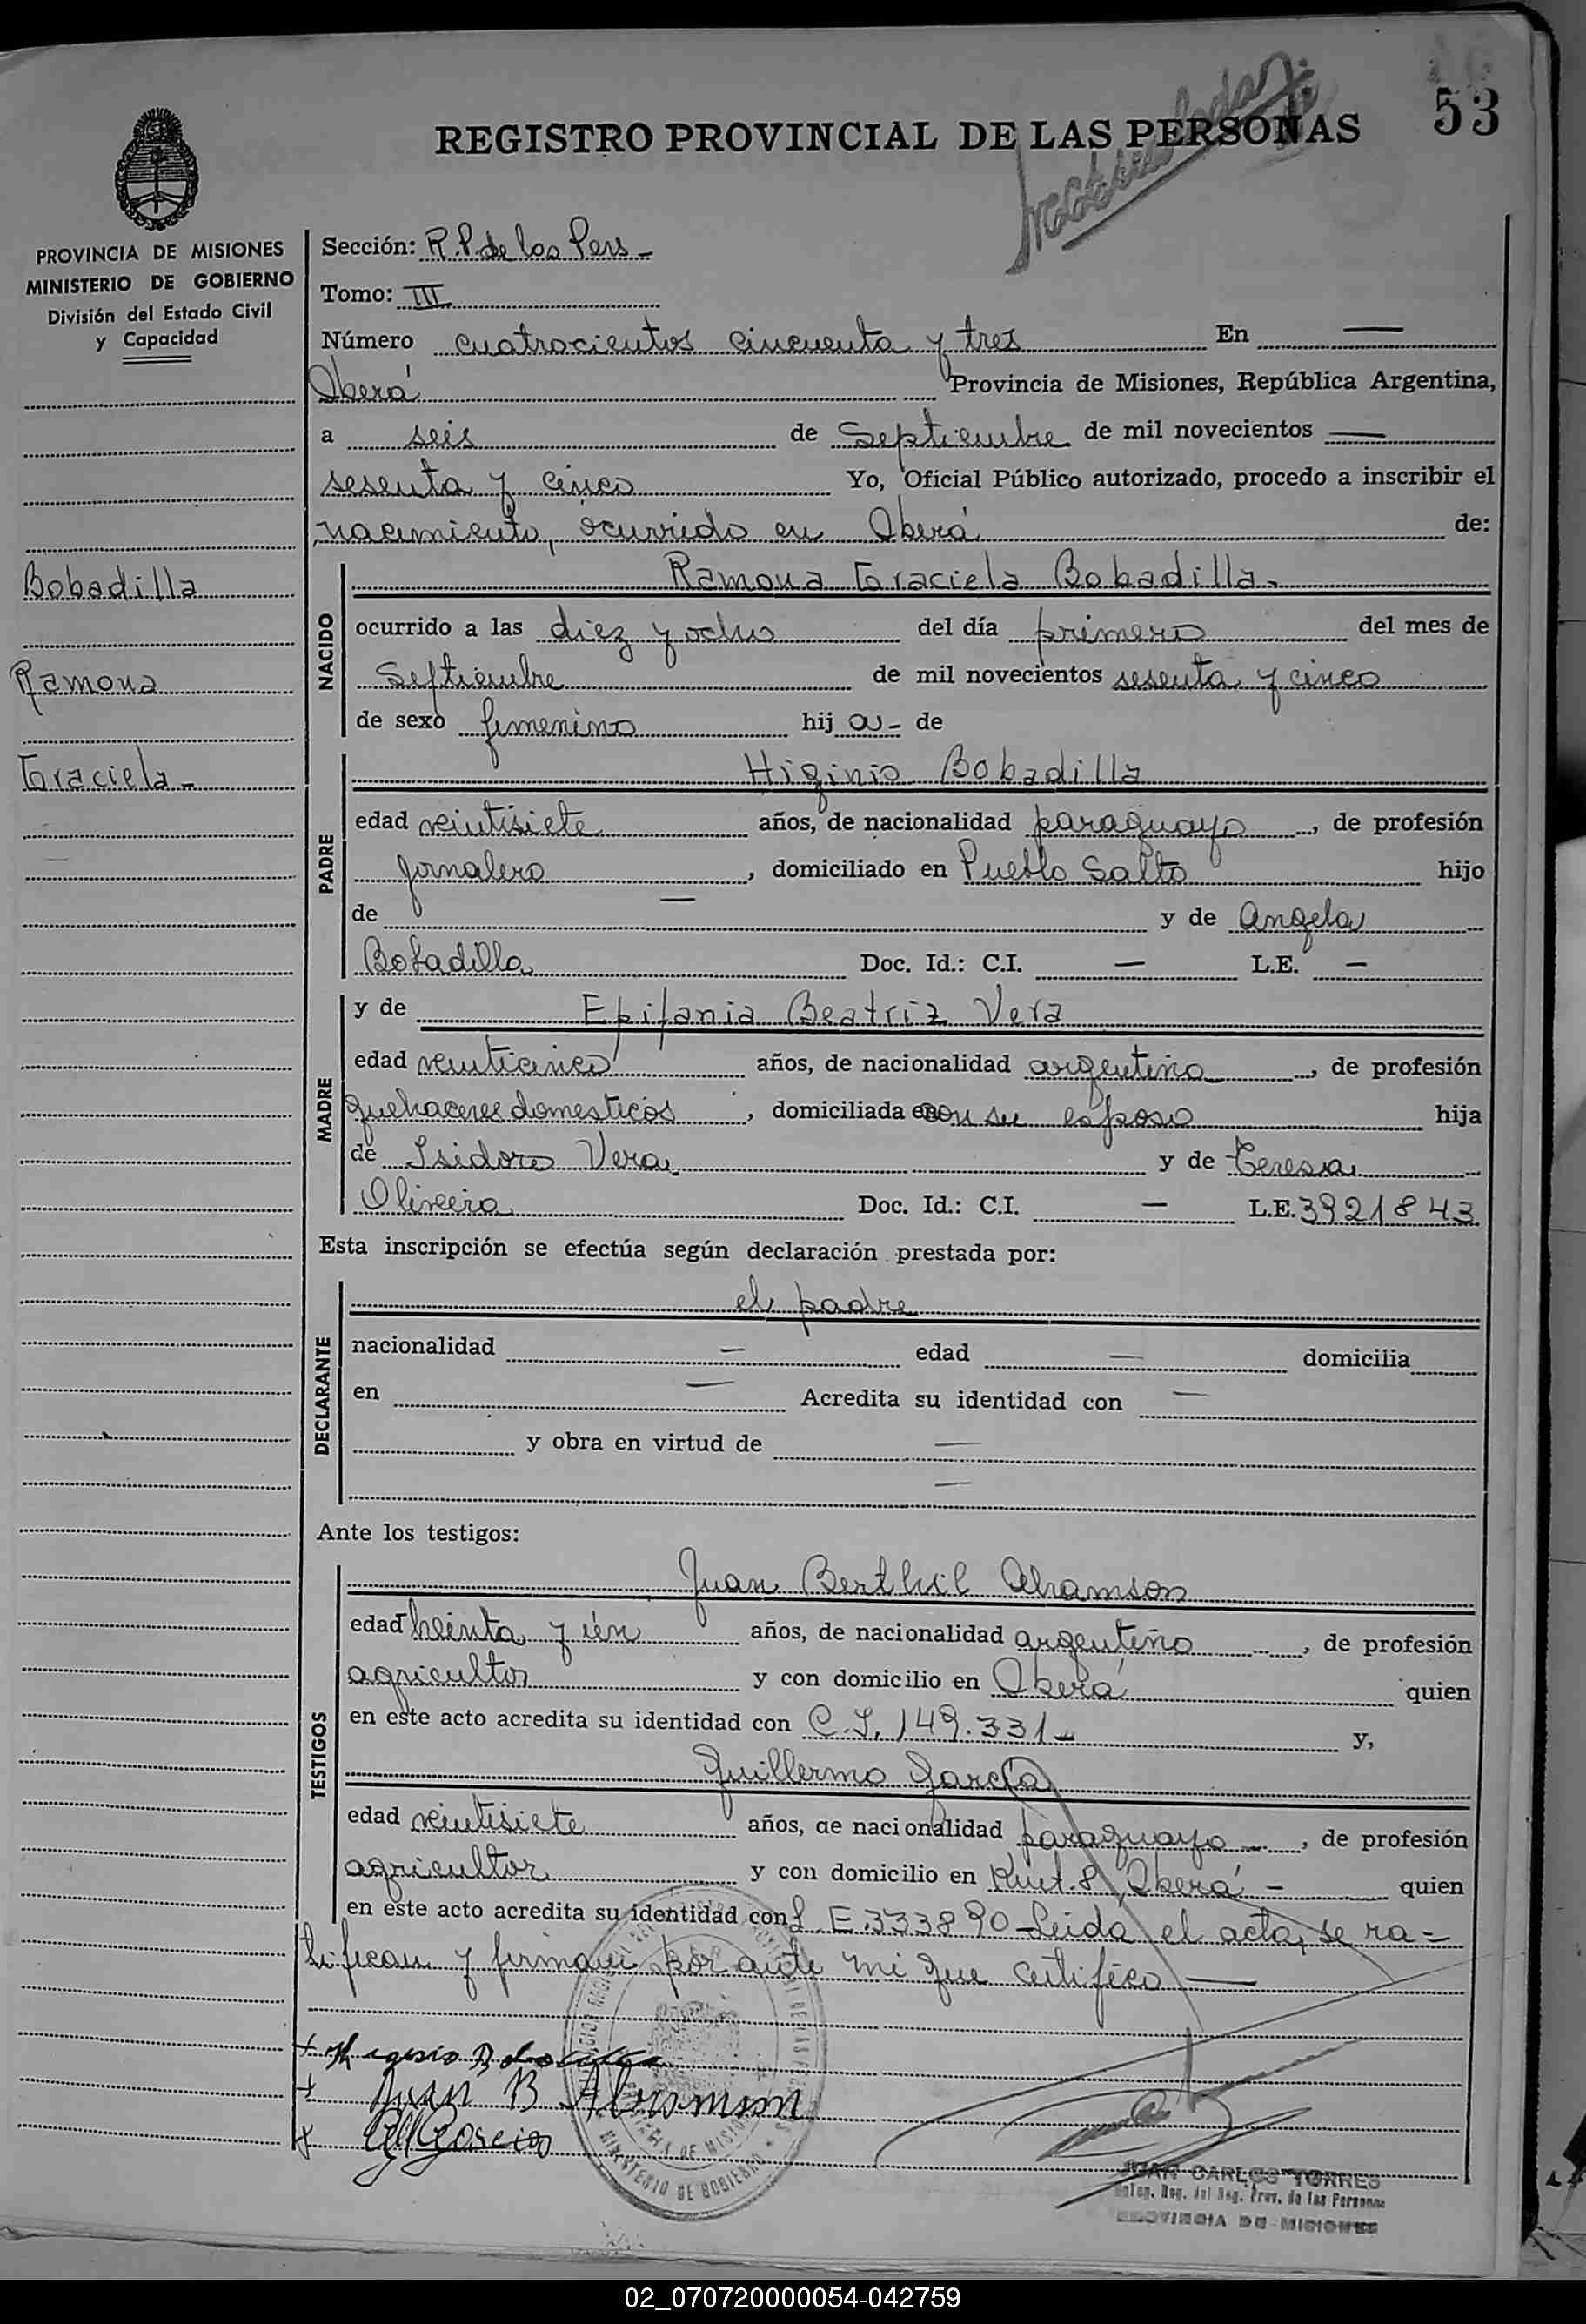 53
REGISTRO PROVINCIAL DE LAS PERSONAS
PROVINCIA DE MISIONES
MINISTERIO DE GOBIERNO
División del Estado Civil
y Capacidad
Bobadilla
Ramona
Graciela -
Sección: R.P. de las Pers -
Tomo: III
Número cuatrocientos cincuenta y tres En —
Oberá Provincia de Misiones, República Argentina,
a seis de Septiembre de mil novecientos —
sesenta y cinco Yo, Oficial Público autorizado, procedo a inscribir el
nacimiento, ocurrido en Oberá de:
NACIDO
Ramona Graciela Bobadilla -
ocurrido a las diez y ocho del día primero del mes de
Septiembre de mil novecientos sesenta y cinco
de sexo femenino hij a - de
PADRE
Higinio Bobadilla
edad veintisiete años, de nacionalidad paraguayo, de profesión
jornalero, domiciliado en Pueblo Salto hijo
de — y de Angela
Bobadilla Doc. Id.: C.I. — L.E. —
MADRE
y de Epifania Beatriz Vera
edad veinticinco años, de nacionalidad argentina, de profesión
quehaceres domesticos, domiciliada en con su esposo hija
de Isidoro Vera y de Teresa
Oliveira Doc. Id.: C.I. — L.E. 3921843
Esta inscripción se efectúa según declaración prestada por:
DECLARANTE
el padre
nacionalidad — edad — domicilia
en — Acredita su identidad con —
y obra en virtud de —
—
Ante los testigos:
TESTIGOS
Juan Berthil Abramson
edad treinta y un años, de nacionalidad argentino, de profesión
agricultor y con domicilio en Oberá quien
en este acto acredita su identidad con C.I. 149.331 - y,
Guillermo García
edad veintisiete años, de nacionalidad paraguayo, de profesión
agricultor y con domicilio en Oberá - quien
en este acto acredita su identidad con E 333890 - Leida el acta, se ra=
tifican y firman por ante mi que certifico —
Juan B Abramson
MINISTERIO DE GOBIERNO
JUAN CARLOS TORRES
PROVINCIA DE MISIONES
02_070720000054-042759